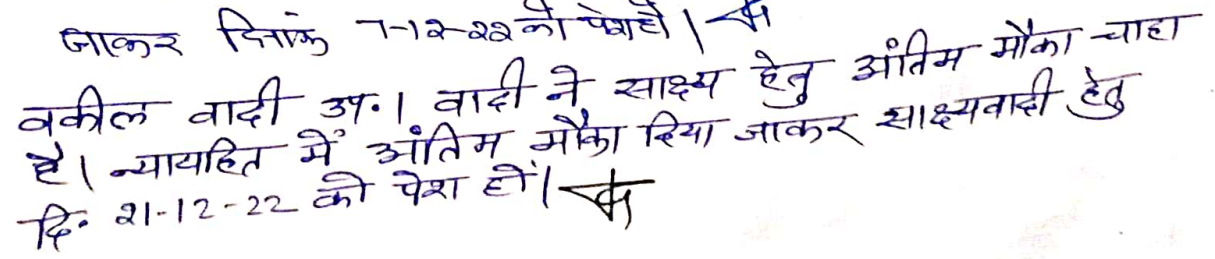 जाकर दिनांक 7-12-22 को पेश हो।
वकील वादी उप.। वादी ने साक्ष्य हेतु अंतिम मौका चाहा
है। न्यायहित में अंतिम मौका दिया जाकर साक्ष्यवादी हेतु
दि. 21-12-22 को पेश हों।